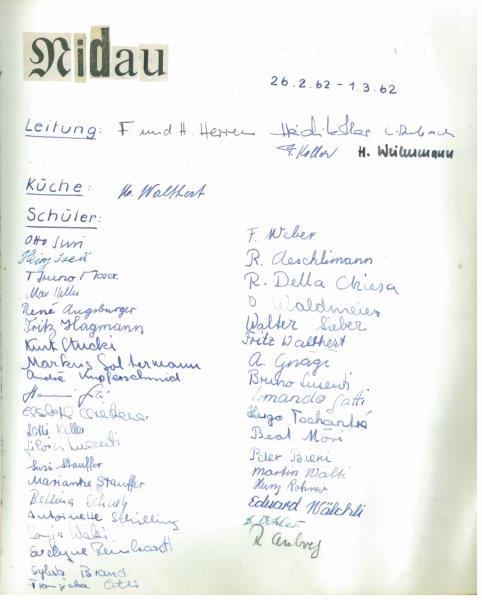 Nidau
26.2.62 - 1.3.62
Leitung: F und H. Herren
F. Keller H. Weilenmann
Küche: H. Walthert
Schüler:
Otto Suri
Heinz
Bruno Moser
Max Keller
René Augsburger
Fritz Hagmann
Kurt Stucki
Markus Soltermann
André Kupferschmid
Lotti Keller
Silvia
Susi Stauffer
Marianne Stauffer
Bettina
Antoinette Schilling
Sonja
Evelyne Reinhardt
Sylvia Brand
Franziska
F. Weber
R. Aeschlimann
R. Della Chiesa
D Waldmeier
Walter Sieber
Fritz Walthert
A. Gnägi
Bruno
Armando Gatti
Hugo
Beat Möri
Peter
Martin Walti
Heinz Rohrer
Eduard Wälchli
R.